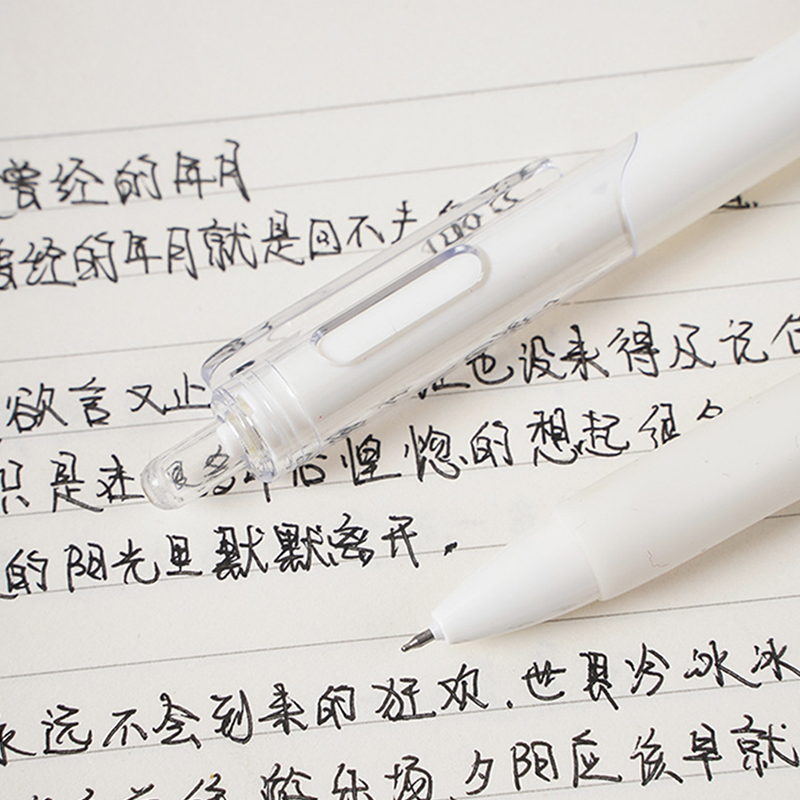 曾经的年月
曾经的年月就是回不去
欲言又止 也没来得及记住
只是在 年后 惶惚的想起
的阳光里默默离开.
永远不会到来的狂欢.世界冷冰冰
游乐场.夕阳应该早就